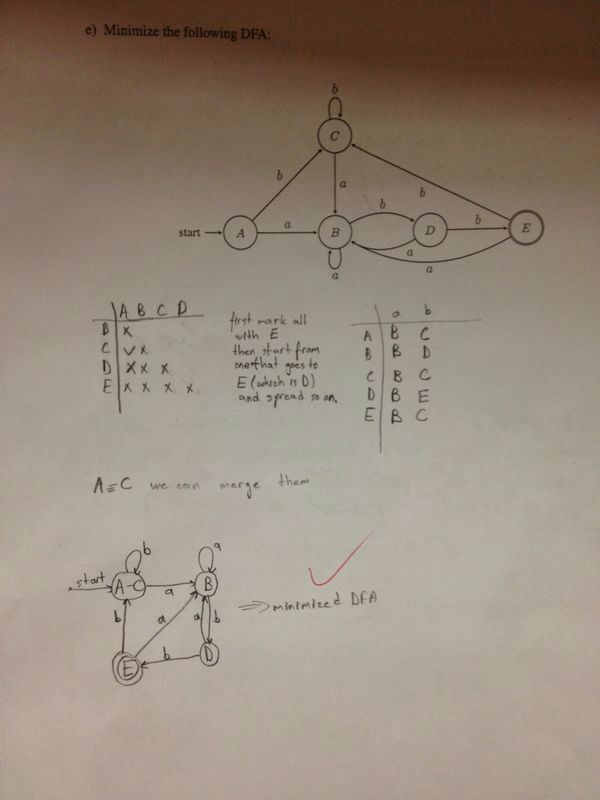 e) Minimize the following DFA:
b
C
b
a
b
b
b
start
A
a
B
D
E
a
a
a
A B C D
B x
C ✓ x
D x x x
E x x x x
first mark all
with E
then start from
one that goes to
E (which is D)
and spread so on.
a b
A B C
B B D
C B C
D B E
E B C
A ≡ C we can merge them
b
a
start
A-C
a
B
b
a
a
b
E
b
D
⇒ minimized DFA